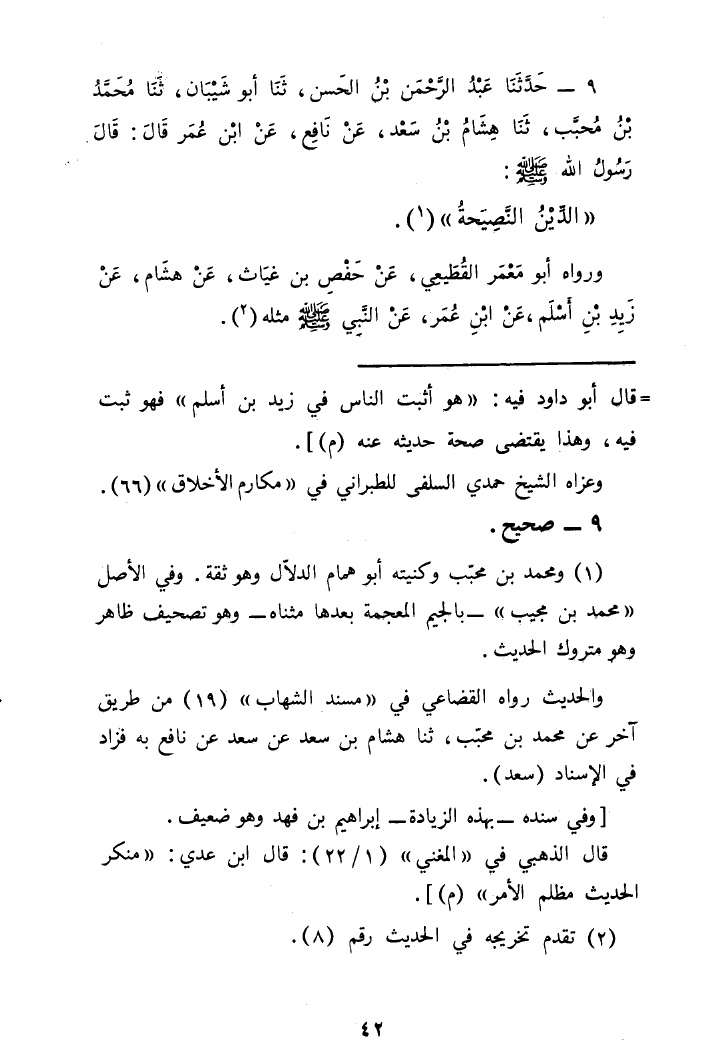 ٩ ــ حَدَّثَنَا عَبْدُ الرَّحْمَن بْنُ الحَسن، ثَنَا أبو شَيْبَان، ثَنَا مُحَمَّدُ
بْنُ مُحبَّب، ثَنَا هِشَامُ بْنُ سَعْد، عَنْ نَافِع، عَنْ ابْن عُمَر قَالَ: قَالَ
رَسُولُ الله ﷺ:
«الدِّيْنُ النَّصِيَحةُ» (١).
ورواه أبو مَعْمَر القُطَيعِي، عَنْ حَفْصِ بن غيَاث، عَنْ هشَام، عَنْ
زَيِدِ بْنِ أَسْلَم، عَنْ ابْنِ عُمَر، عَنْ النَّبِي ﷺ مثله (٢).
=قال أبو داود فيه: «هو أثبت الناس في زيد بن أسلم» فهو ثبت
فيه، وهذا يقتضى صحة حديثه عنه (م)].
وعزاه الشيخ حمدي السلفى للطبراني في «مكارم الأخلاق» (٦٦).
٩ ــ صحيح.
(١) ومحمد بن محبّب وكنيته أبو همام الدلاّل وهو ثقة. وفي الأصل
«محمد بن مجيب» ــ بالجيم المعجمة بعدها مثناه ــ وهو تصحيف ظاهر
وهو متروك الحديث.
والحديث رواه القضاعي في «مسند الشهاب» (١٩) من طريق
آخر عن محمد بن محبّب، ثنا هشام بن سعد عن سعد عن نافع به فزاد
في الإسناد (سعد).
[وفي سنده ــ بهذه الزيادة ــ إبراهيم بن فهد وهو ضعيف.
قال الذهبي في «المغني» (١/٢٢): قال ابن عدي: «منكر
الحديث مظلم الأمر» (م)].
(٢) تقدم تخريجه في الحديث رقم (٨).
٤٢